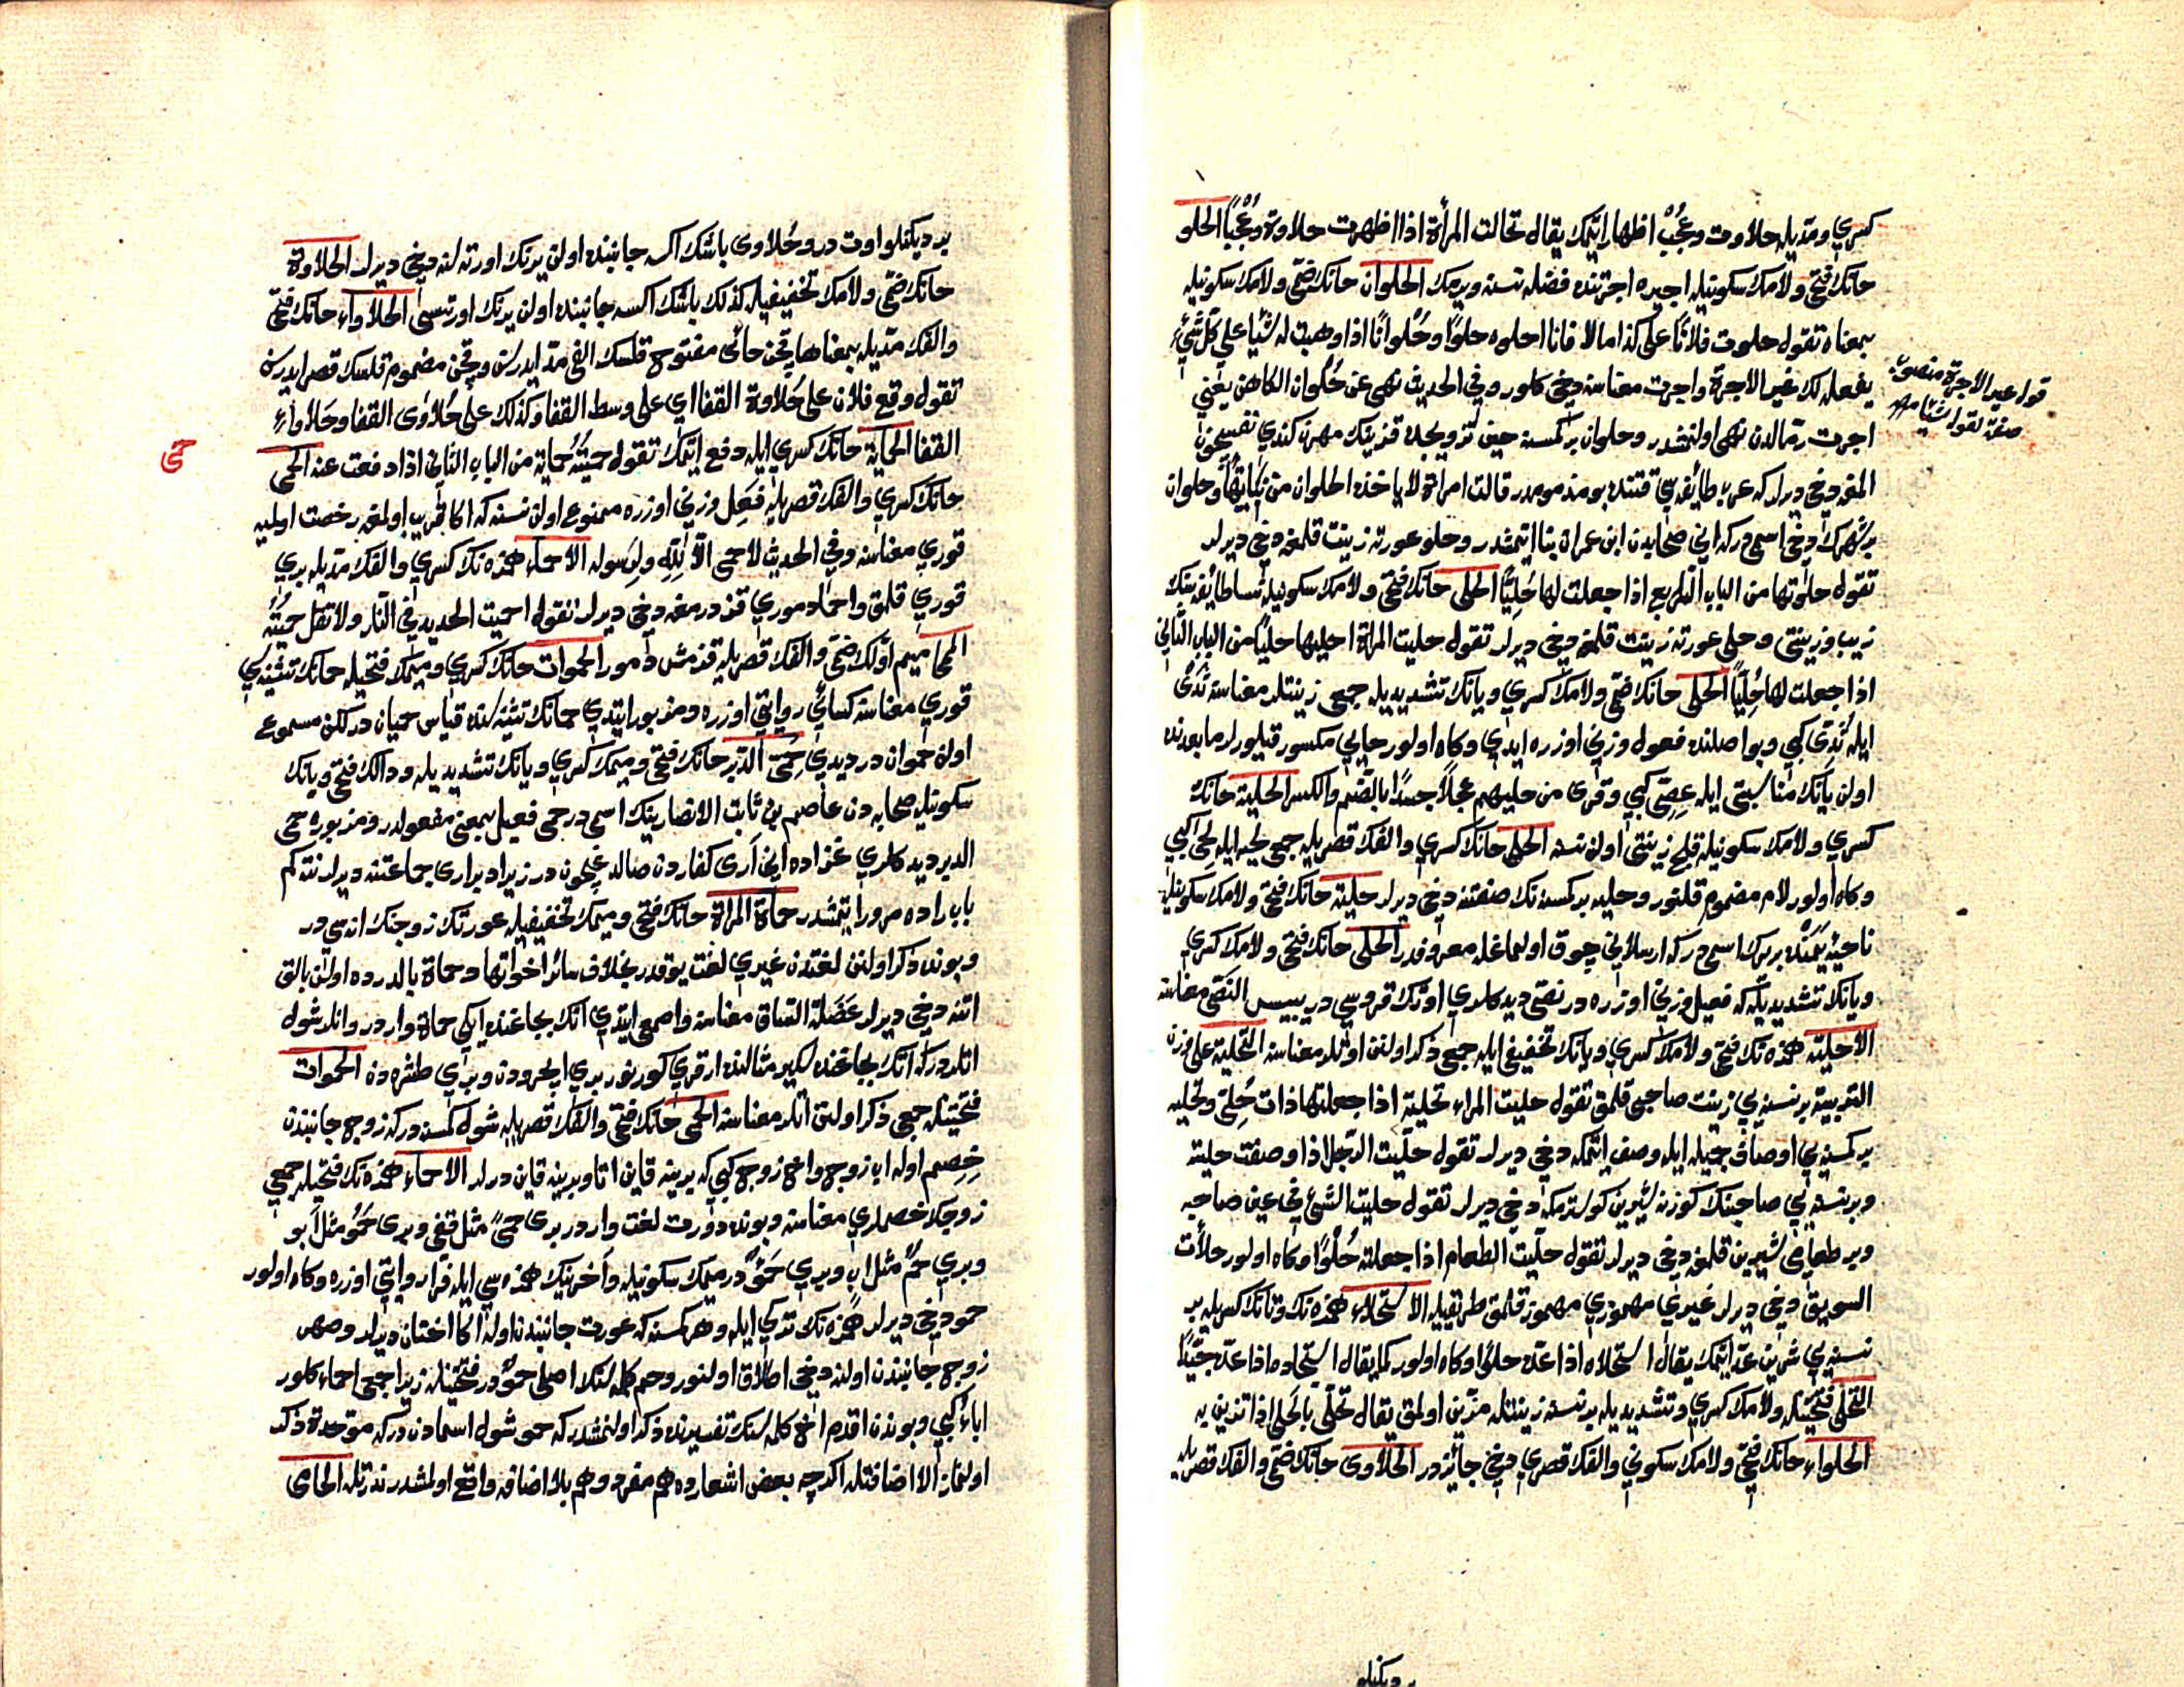 كسري ومدّيله حلاوت وعُجُبْ اظهار ايتمك يقال تحالت المرأة اذا اظهرت حلاوة وعُجْبًا الحلو
حانك فتحي ولامك سكونيله اجيره اجرتنده فضله نسنه ويرمك الحلوان حانك ضمّي ولامك سكونيله
بمعناه تقول حلوت فلانًا على كذا مالا فانا احلوه حلوًا وحُلوانًا اذا وهبت له شيًا على كلّ شيءٍ
يفعله لك غير الاجرة واجرت معناسنه دخي كلور وفي الحديث نهى عن حُلوان الكاهن يعني
اجرت رمّالدن نهي اولنمشدر وحلوان بر كمسنه حين تزويجده قزينك مهرن كندي نفسيچون
المغه دخي ديرلر كه عرب طائفه سي قتنده بو مذمومدر قالت امراة لا ياخذ الحلوان من بَناتِهَا وحلوان
بر شهرك دخي اسمى دركه اني صحابيدن ابن عمران بنا ايتمشدر وحلو عورته زينت قلمغه دخي ديرلر
تقول حلوتها من الباب الرابع اذا جعلت لها حُلِيًّا الحلى حانك فتحي ولامك سكونيله نسا طائفه سنك
زيب وزينتى وحلي عورته زينت قلمغه دخي ديرلر تقول حليت المرأة احليها حليًا من الباب الثاني
اذا جعلت لها حُلِيًّا الحلى حانك ضمّي ولامك كسري ويانك تشديديله جمعى زينتلر معناسنه ثَدْىٌ
ايله ثُدِىّ كبي وبو اصلنده فعول وزني اوزره ايدي وكاه اولور حايي مكسور قيلورلر ما بعدنده
اولن يانك مناسبتى ايله عِصِىّ كبي وقرئ من حليهم عجلًا جسدًا بالضم والكسر الحلية حانك
كسري ولامك سكونيله قلج زينتى اولن نسنه الحلى حانك كسري والفك قصريله جمعى لحيه ايله لحى كبي
وكاه اولور لام مضموم قلنور وحليه بر كمسنه نك صفتنه دخي ديرلر حلية حانك فتحي ولامك سكونيله
ناحيهٔ يَمَنْده بر يرك اسمى دركه ارسلاني چوق اولمغله معروفدر الحلى حانك فتحي ولامك كسري
ويانك تشديديله كه فعيل وزني اوزره در نصى ديدكلري اوتك قروسي در يبيس النصى معناسنه
الاحلية همزه نك فتحي ولامك كسري ويانك تخفيفي ايله جمعى ذكر اولنن اوتلر معناسنه التحلية على وزن
التربية بر نسنه يي زينت صاحبى قلمق تقول حليت المراء تحلية اذا جعلتها ذات حُلِىّ وتحليه
بر كمسنه يي اوصاف جميله ايله وصف ايتمكه دخي ديرلر تقول حلّيت الرجل اذا وصفت حليته
وبر نسنه يي صاحبنك كوزنه شيرين كوسترمكه دخي ديرلر تقول حليت الشئ في عين صاحبه
وبر طعامى شيرين قلمغه دخي ديرلر تقول حلّيت الطعام اذا جعلته حُلْوًا وكاه اولور حلأت
السويق دخي ديرلر غير مهموزي مهموز قلمق طريقيله الاستحلاء همزه نك وتانك كسريله بر
نسنه يي شرين عدّ ايتمك يقال استحلاه اذا عدّه حلوًا وكاه اولور كما يقال استجاده اذا عدّه جيّدًا
التحلى فتحتيله ولامك كسري وتشديديله بر نسنه زينتله مزيّن اولمق يقال تحلّى بالحلى اذا تزين به
الحلواء حانك فتحي ولامك سكوني والفك قصري دخي جائزدر الحلاوى حانك ضمّي والفك قصريله
قوله غير الاجرة منصوب
صفة لقوله شيا
بر ديكنلو
بر ديكنلو اوت در وحُلاوى باشك اكسه جانبنده اولن يرنك اورته لنه دخي ديرلر الحلاوة
حانك ضمّي ولامك تخفيفيله كذلك باشك اكسه جانبنده اولن يرنك اورتسى الحلاواء حانك فتحي
والفك مدّيله بمعناها قچن حائى مفتوح قلسك الفى مدّ ايدرسن وقچن مضموم قلسك قصر ايدرسن
تقول وقع فلان على حُلاوة القفا اي على وسط القفا وكذلك على حُلاوى القفا وحَلاواءِ
القفا الحماية حانك كسري ايله دفع ايتمك تقول حميتُهُ حماية من الباب الثاني اذا دفعت عنه الحمى
حانك كسري والفك قصريله فِعَل وزني اوزره ممنوع اولن نسنه كه اكا قريب اولمغه رخصت اوليه
قوري معناسنه وفي الحديث لا حمى الّا لِلّهِ ولِرسوله الاحماء همزه نك كسري والفك مدّيله يري
قوري قلمق واحما دموري قزدرمغه دخي ديرلر تقول احميت الحديد في النار ولا تقل حميته
المحما ميم اولك ضمّي والفك قصريله قزمش دمور الحموات حانك كسري وميمك فتحيله حمانك تثنيه سي
قوري معناسنه كسائي روايتى اوزره ومزبور ايتدي حمانك تثنيه سنده قياس حميان در لكن مسموع
اولان حموان در ديدي حَمِىّ الدَبْر حانك فتحي وميمك كسري ويانك تشديديله ودالك فتحي وبانك
سكونيله صحابه دن عاصم بن ثابت الانصارينك اسمى در حمى فعيل بمعنى مفعولدر ومزبوره حمى
الدبر ديدكلري غزاده اني آرى كفاردن صاقلديغيچون در زيرا دبر ارى جماعتنه ديرلر نته كم
باب راده مرور ايتمشدر حماة المرأة حانك فتحي وميمك تخفيفيله عورتك زوجنك اناسى در
وبونده ذكر اولنن لغتدن غيري لغت يوقدر بخلاف سائر اخواتها وحماة بالدرده اولان بالق
اتنه دخي ديرلر عَضَلة الساق معناسنه واصمعى ايتدي اتك بجاغنده ايكي حماة واردر وانلر شول
اتلردركه اتك بجاغنده سكير مثالنده ارقري كورنور بري ايچرودن وبري طشره دن الحموات
فتحتيله جمعى ذكر اولنن اتلر معناسنه الحمى حانك فتحي والفك قصريله شول كمسنه دركه زوج جانبندن
خِصِم اوله اب زوج واخ زوج كبي كه برينه قاين اتا وبرينه قاين ديرلر الاحماء همزه نك فتحيله جمعى
زوجك خصملري معناسنه وبونده دورت لغت واردر بري حَمًى مثل قفى وبري حَمُو مثل ابو
وبري حَمٌ مثل اب وبري حَمْؤٌ در ميمك سكونيله واخرينك همزه سي ايله فرّاء روايتى اوزره وكاه اولور
حمو دخي ديرلر همزه نك تركي ايله وهر كمسنه كه عورت جانبندن اوله اكا اختان ديرلر وصهر
زوج جانبندن اولنه دخي اطلاق اولنور وحم كلمه سنك اصلى حموٌ در فتحتيله زيرا جمعى احماء كلور
اباءُ كبي وبوندن اقدم اخ كلمه سنك تفسيرنده ذكر اولنمشدركه حمو شول اسمادن دركه موحدة ذكر
اولنماز الا اضافتله اكرچه بعض اشعارده هم مفرد وهم بلا اضافه واقع اولمشدر ندرتله الحامى
حمى